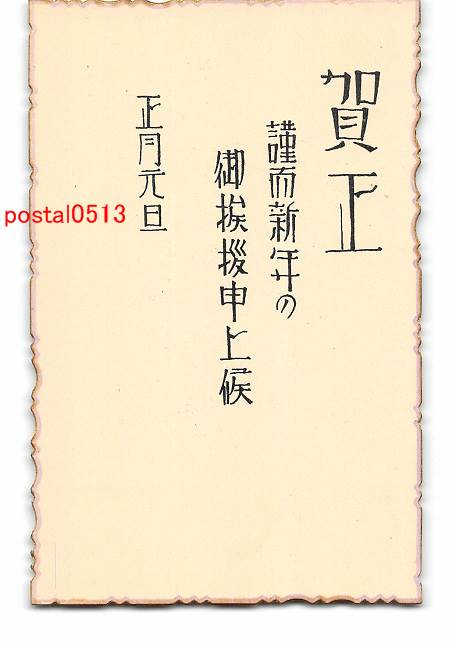 賀正
謹而新年の
御挨拶申上候
正月元旦
postal0513